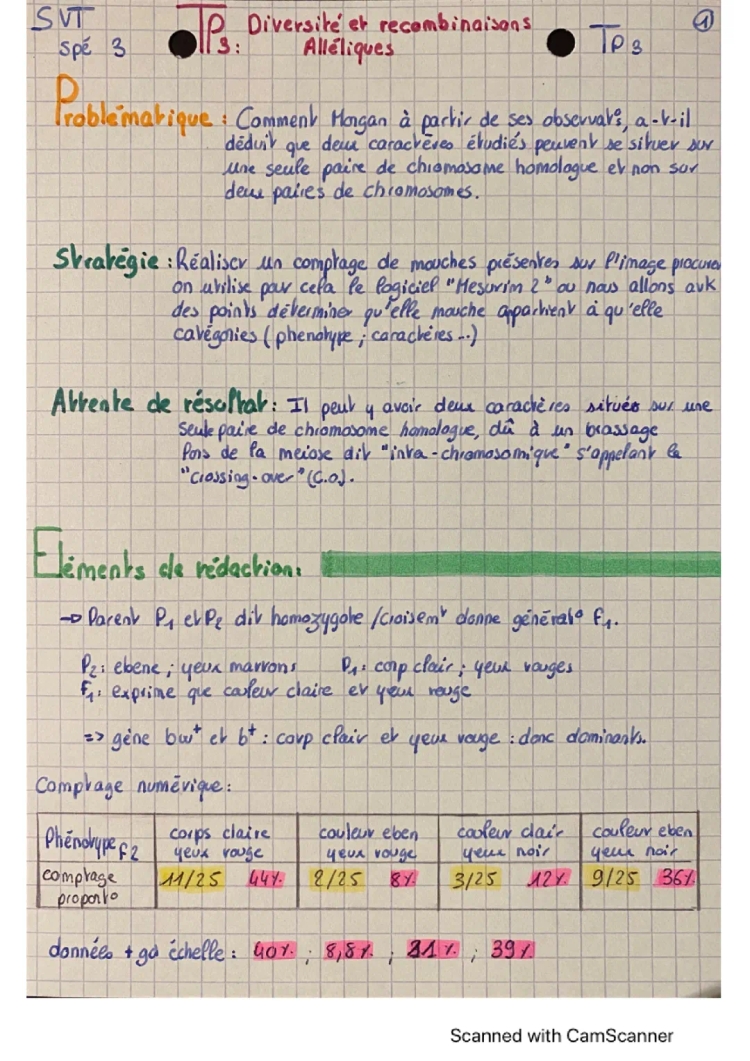 SVT
spé 3
TP3: Diversité et recombinaisons
Alléliques
TP3
1
Problématique : Comment Morgan à partir de ses observat°s, a-t-il
déduit que deux caractères étudiés peuvent se situer sur
une seule paire de chromosome homologue et non sur
deux paires de chromosomes.
Stratégie : Réaliser un comptage de mouches présentes sur l'image procurer
on utilise pour cela le logiciel "Mesurim 2" ou nous allons avk
des points déterminer qu'elle mouche appartient à qu'elle
catégories (phenotype ; caractères...)
Attente de résultat : Il peut y avoir deux caractères situés sur une
seule paire de chromosome homologue, dû à un brassage
lors de la meiose dit "intra-chromosomique" s'appelant le
"crossing-over" (C.O).
Eléments de rédaction :
→ Parent P1 et P2 dit homozygote / croisemt donne générat° F1.
P2 : ebene ; yeux marrons P1 : corp clair ; yeux rouges
F1 : exprime que couleur claire et yeux rouge
=> gène bw+ et b+ : corp clair et yeux rouge : donc dominants.
Comptage numérique :
Phénotype F2 corps claire couleur eben couleur clair couleur eben
yeux rouge yeux rouge yeux noir yeux noir
comptage 11/25 44% 2/25 8% 3/25 12% 9/25 36%
proport°
données + gd échelle : 40% ; 8,8% ; 31% ; 39%
Scanned with CamScanner